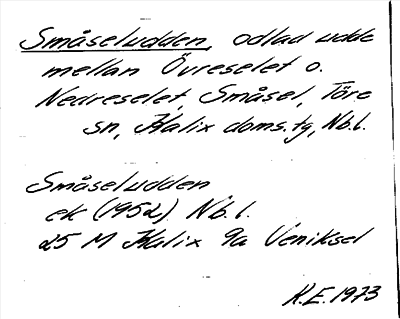 Småseludden, odlad udde
mellan Övreselet o.
Nedreselet, Småsel, Töre
sn, Kalix doms.tg, Nb.l.
Småseludden
ek (1952) Nb.l.
25 M Kalix 9a Veniksel
K.E. 1973